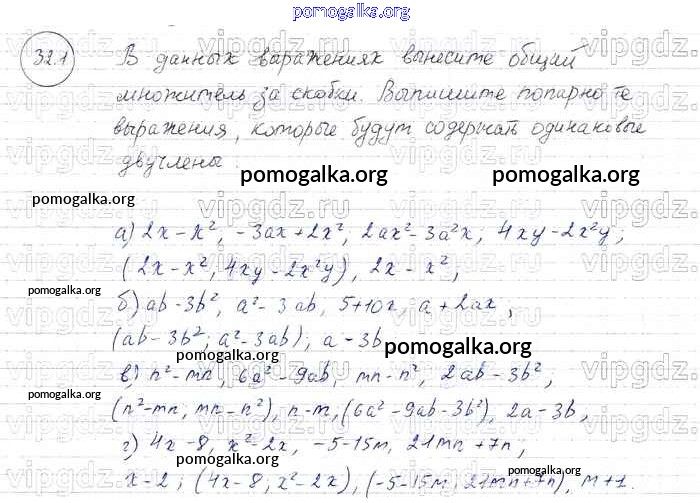 pomogalka.org
32.1 В данных выражениях вынесите общий
множитель за скобки. Выпишите попарно те
выражения, которые будут содержать одинаковые
двучлены.
pomogalka.org pomogalka.org
pomogalka.org
а) 2x - x², -3ax + 2x², 2ax² - 3a²x; 4xy - 2x²y;
(2x - x², 4xy - 2x²y), 2x - x²,
pomogalka.org
б) ab - 3b², a² - 3ab, 5 + 10x, a + 2ax,
(ab - 3b²; a² - 3ab); a - 3b
pomogalka.org pomogalka.org
в) n² - mn, 6a² - 9ab, mn - n², 2ab - 3b²,
(n² - mn, mn - n²), n - m, (6a² - 9ab - 3b²), 2a - 3b,
г) 4x - 8, x² - 2x, -5 - 15m, 21mn + 7n;
pomogalka.org pomogalka.org
x - 2; (4x - 8, x² - 2x), (-5 - 15m, 21mn + 7n), m + 1.